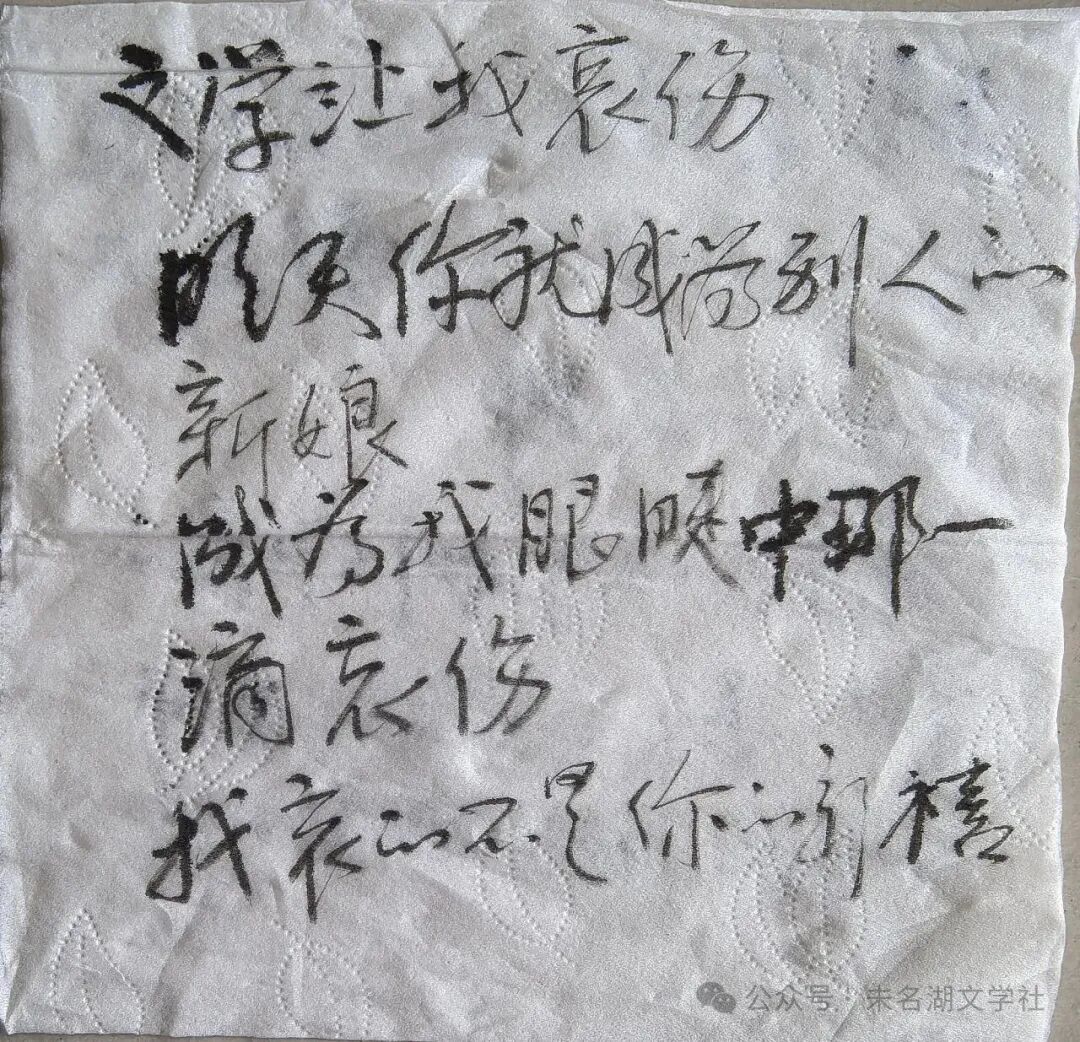 文学让我哀伤
明天你就成为别人的
新娘
成为我眼睫中那一
滴哀伤
我哀的不是你的禧
公众号 · 未名湖文学社